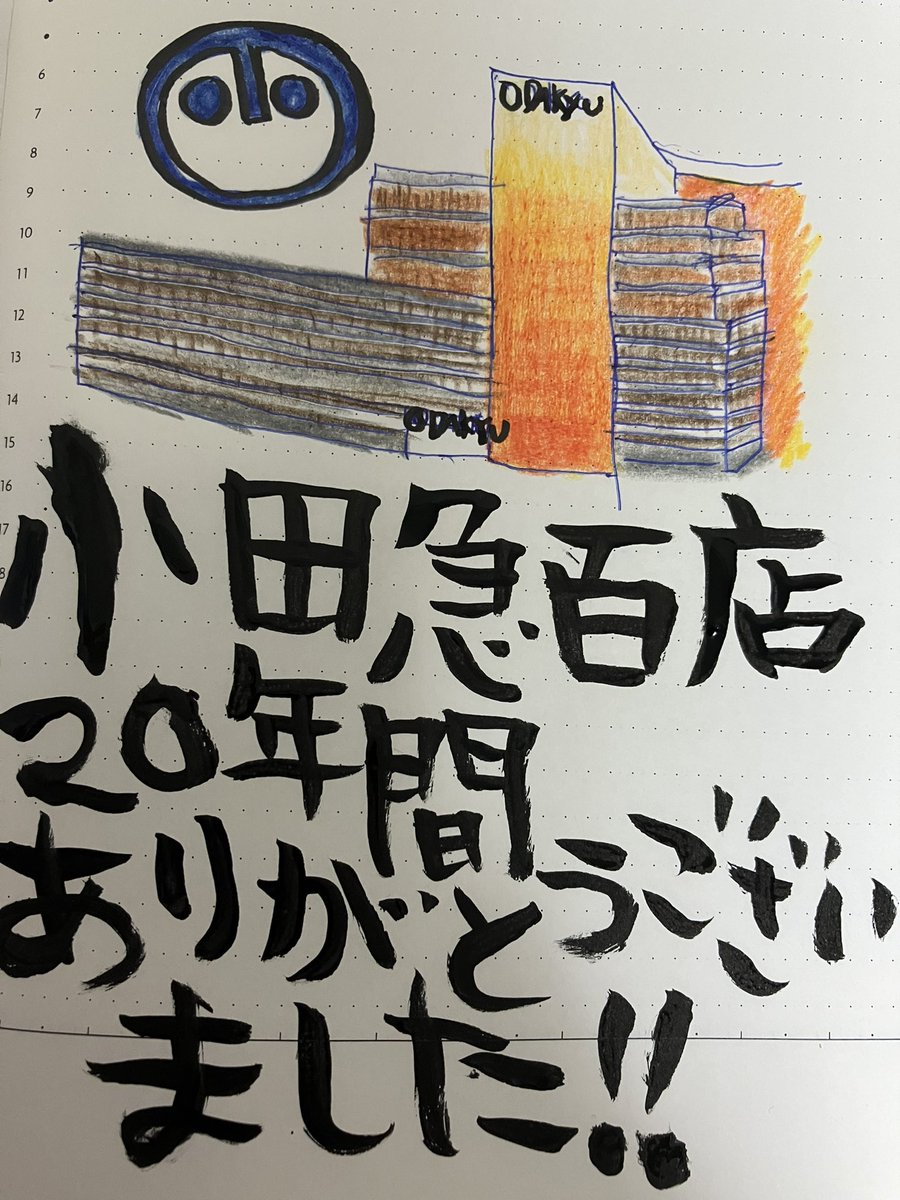 6
7
8
9
10
11
12
13
14
15
16
17
ODAKYU
ODAKYU
小田急百店
20年間
ありがとうござい
ました!!